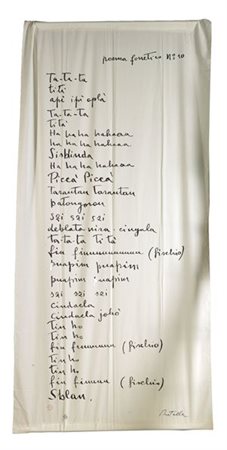 poema fonetico N° 10
Ta-ta-ta
tità
api ipi oplà
Ta-ta-ta
tità
Ha ha ha hahaaa
ha ha ha hahaaa
Sirbinda
Ha ha ha hahaaa
Piccà Piccà
tarautau tarautau
patongoron
szi szi szi
deblatanira cingala
ta-ta-ta ti tà
fiu fiuuuuuuuuu (fischio)
inapim
puapim inapim
szi szi szi
cindaela
cindaela johò
tiu ho
tiu ho
fiu fiuuuuuu (fischio)
tiu ho
tiu ho
fiu fiuuuu (fischio)
Sblau.